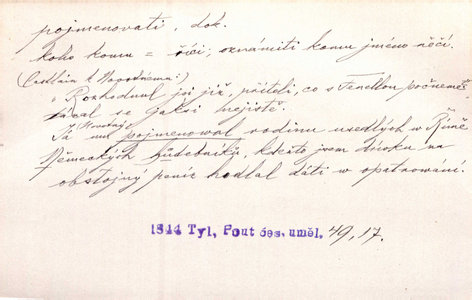 pojmenovati, dok.
koho komu = říci, oznámiti komu jméno něčí.
(Castláin k Novotnému:)
„Rozhodnul jsi již, příteli, co s Fanellou počneme?",
tázal se Gaksi nejistě.
Já (Novotný) mu pojmenoval rodinu usedlých v Římě
Německých hudebníků, kdežto jsem dívku na
obstojný peníz hodlal dáti v opatrování.
1844 Tyl, Pout čes. uměl. 49, 17.